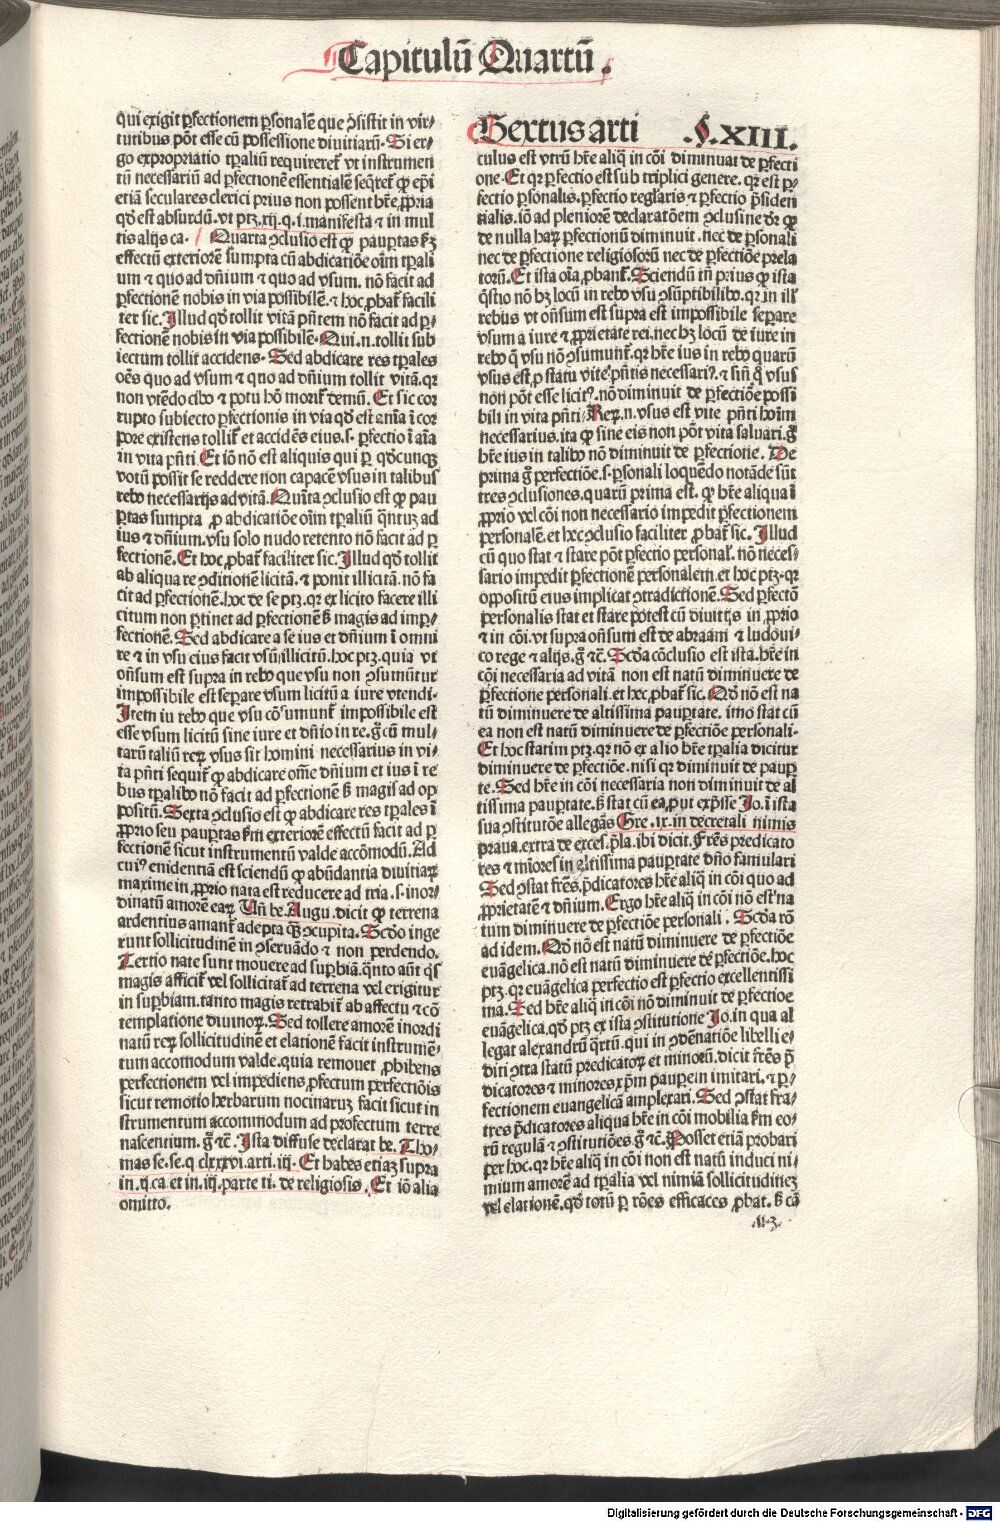 Capitulū Quartū.
qui exigit ꝑfectionem ꝑsonalē que ꝯsistit in vir⸗
tutibus pōt esse cū possessione diuitiarū. Si er⸗
go expropriatio tꝑaliū requireret᷑ vt instrumen
tū necessariū ad ꝑfectionē essentialē seq̄ret᷑ ꝙ epī
etiā seculares clerici prius non possent hr̄e ꝓpria
qd̓ est absurdū. vt ptꝫ. xij. q. i. manifesta ⁊ in mul
tis alijs ca. Quarta ꝯclusio est ꝙ paup̲tas ẜꝫ
effectū exteriorē sumpta cū abdicatiōe oīm tꝑali
um ⁊ quo ad dn̄ium ⁊ quo ad vsum. nō facit ad
ꝑfectionē nobis in via possibilē. ⁊ hoc ꝓbat᷑ facili
ter sic. Illud qd̓ tollit vitā pn̄tem nō facit ad ꝑ⸗
fectionē nobis in via possibilē. Qui .n. tollit sub
iectum tollit accidens. Sed abdicare res tꝑales
oēs quo ad vsum ⁊ quo ad dn̄ium tollit vitā. qꝛ
non vtēdo cibo ⁊ potu hō morit᷑ demū. Et sic cor
rupto subiecto ꝑfectionis in via qd̓ est aīa ī cor
pore existens tollit᷑ et accidēs eius .s. ꝑfectio ī aīa
in vita pn̄ti. Et iō nō est aliquis qui ꝑ qd̓cunqꝫ
votū possit se reddere non capacē vsus in talibus
rebꝰ necessarijs ad vitā. Quīta ꝯclusio est ꝙ pau
ꝑtas sumpta ꝓ abdicatiōe oīm tꝑaliū q̄ntuꝫ ad
ius ⁊ dn̄ium. vsu solo nudo retento nō facit ad ꝑ
fectionē. Et hoc ꝓbat᷑ faciliter sic. Illud qd̓ tollit
ab aliqua re ꝯditionē licitā. ⁊ ponit illicitā. nō fa
cit ad ꝑfectionē. hoc de se ptꝫ. qꝛ ex licito facere illi
citum non ꝑtinet ad ꝑfectionē ẜ magis ad imꝑ⸗
fectionē. Sed abdicare a se ius et dn̄ium ī omni
re ⁊ in vsu eius facit vsū illicitū. hoc ptꝫ. quia vt
on̄sum est supra in rebꝰ que vsu non ꝯsumūtur
impossibile est separe vsum licitū a iure vtendi.
Item in rebꝰ que vsu cōsumunt᷑ impossibile est
esse vsum licitū sine iure et dn̄io in re. g̊ cū mul⸗
tarū taliū reꝝ vsus sit homini necessarius in vi⸗
ta pn̄ti sequit᷑ ꝙ abdicare om̄e dn̄ium et ius ī re
bus tꝑalibꝰ nō facit ad ꝑfectionē ẜ magis ad op
positū. Sexta ꝯclusio est ꝙ abdicare res tꝑales ī
ꝓprio seu pauꝑtas ẜm exteriorē effectū facit ad ꝑ
fectionē sicut instrumentū valde accōmodū. Ad
cuiꝰ euidentiā est sciendū ꝙ abūdantia diuitiaꝝ
maxime in ꝓprio nata est reducere ad tria .s. inor⸗
dinatū amorē eaꝝ. Vn̄ be. Augu. dicit ꝙ terrena
ardentius amant᷑ adepta qꝫ̄ ꝯcupita. Scd̓o inge
runt sollicitudinē in ꝯseruādo ⁊ non perdendo.
Tertio nate sunt mouere ad suꝑbiā. q̄nto aūt q̄s
magis afficit᷑ vel sollicitat᷑ ad terrena vel erigitur
in suꝑbiam. tanto magis retrahit᷑ ab affectu ⁊ cō
templatione diuinoꝝ. Sed tollere amorē inordi
natū reꝝ sollicitudinē et elationē facit instrumē⸗
tum accomodum valde. quia remouet ꝓhibens
perfectionem vel impediens ꝓfectum perfectiōis
sicut remotio herbarum nociuaruꝫ facit sicut in
strumentum accommodum ad profectum terre
nascentium. g̊ ⁊c̄. Ista diffuse declarat be. Tho⸗
mas se. se. q. clxxxvi. arti. iij. Et habes etiaꝫ supra
in .ij. ca. et in .iij. parte ti. de religiosis. Et iō alia
omitto.
Sextus arti §. XIII.
culus est vtrū hr̄e aliq̄ in cōi diminuat de ꝑfecti
one. Et qꝛ ꝑfectio est sub triplici genere. qꝛ est ꝑ⸗
fectio ꝑsonalis. ꝑfectio regl̓aris ⁊ ꝑfectio p̄siden
tialis. iō ad pleniorē declaratōem ꝯclusine dr̄ ꝙ
de nulla haꝝ ꝑfectionū diminuit. nec de ꝑsonali
nec de ꝑfectione religiosorū nec de ꝑfectiōe prela
torū. Et ista oīa ꝓbant᷑. Sciendū tn̄ prius ꝙ ista
q̄stio nō hꝫ locū in rebꝰ vsu ꝯsūptibilibꝰ. qꝛ in ill᷑
rebus vt on̄sum est supra est impossibile separe
vsum a iure ⁊ ꝓprietate rei. nec hꝫ locū de iure in
rebꝰ q̄ vsu nō ꝯsumunt᷑. qꝛ hr̄e ius in rebꝰ quarū
vsus est ꝓ statu vite pn̄tis necessariꝰ. ⁊ sin̄ q̊ vsus
non pōt esse licitꝰ. nō diminuit de ꝑfectiōe possi
bili in vita pn̄ti. Reꝝ .n. vsus est vite pn̄ti hoīm
necessarius. ita ꝙ sine eis non pōt vita saluari. g̊
hr̄e ius in talibꝰ nō diminuit de ꝑfectione. De
prima g̊ perfectiōe .s. ꝑsonali loquēdo notāde sūt
tres ꝯclusiones. quarū prima est. ꝙ hr̄e aliqua ī
ꝓprio vel cōi non necessario impedit ꝑfectionem
personalē. et hec ꝯclusio faciliter ꝓbat᷑ sic. Illud
cū quo stat ⁊ stare pōt ꝑfectio personal᷑. nō neces⸗
sario impedit ꝑfectionē personalem. et hoc ptꝫ. qꝛ
oppositū eius implicat ꝯtradictionē. Sed ꝑfectō
personalis stat et stare potest cū diuitijs in ꝓprio
⁊ in cōi. vt supra on̄sum est de abraam ⁊ ludoui⸗
co rege ⁊ alijs. g̊ ⁊c̄. Scd̓a cōclusio est ista. hr̄e in
cōi necessaria ad vitā non est natū diminuere de
ꝑfectione personali. et hec ꝓbat᷑ sic. Qd̓ nō est na
tū diminuere de altissima pauꝑtate. imo stat cū
ea non est natū diminuere de ꝑfectiōe personali.
Et hoc statim ptꝫ. qꝛ nō ex alio hr̄e tꝑalia dicitur
diminuere de ꝑfectiōe. nisi qꝛ diminuit de pauꝑ
te. Sed hr̄e in cōi necessaria non diminuit de al
tissima pauꝑtate. ẜ stat cū ea. ꝓut exp̄sse Jo. ī ista
sua ꝯstitutōe allegās Gre. ix. in decretali nimis
praua. extra de exces. p̄la. ibi dicit. Fr̄es predicato
res ⁊ mīores in altissima pauꝑtate dn̄o famulari
Sed ꝯstat fr̄es p̄dicatores hr̄e aliq̄ in cōi quo ad
ꝓprietatē ⁊ dn̄ium. Ergo hr̄e aliq̄ in cōi nō est na
tum diminuere de ꝑfectiōe personali. Scd̓a rō
ad idem. Qd̓ nō est natū diminuere de ꝑfectiōe
euāgelica. nō est natū diminuere de ꝑfectiōe. hoc
ptꝫ. qꝛ euāgelica perfectio est ꝑfectio excellentissi
ma. Sed hr̄e aliq̄ in cōi nō diminuit de ꝑfectioe
euāgelica. qd̓ ptꝫ ex ista ꝯstitutione Jo. in qua al
legat alexandrū q̄rtū. qui in ꝯdēnatiōe libelli e⸗
diti ꝯtra statū predicatoꝝ et minorū. dicit fr̄es p̄
dicatores ⁊ minores xp̄m pauꝑem imitari. ⁊ ꝑ⸗
fectionem euangelicā amplexari. Sed ꝯstat fra⸗
tres p̄dicatores aliqua hr̄e in cōi mobilia ẜm eo⸗
rū regulā ⁊ ꝯstitutiōes. g̊ ⁊c̄. Posset etiā probari
per hoc. qꝛ hr̄e aliq̄ in cōi non est natū induci ni⸗
mium amorē ad tꝑalia vel nimiā sollicitudineꝫ
vel elationē. qd̓ totū ꝑ rōes efficaces ꝓbat. ẜ cā
Digitalisierung gefördert durch die Deutsche Forschungsgemeinschaft - DFG